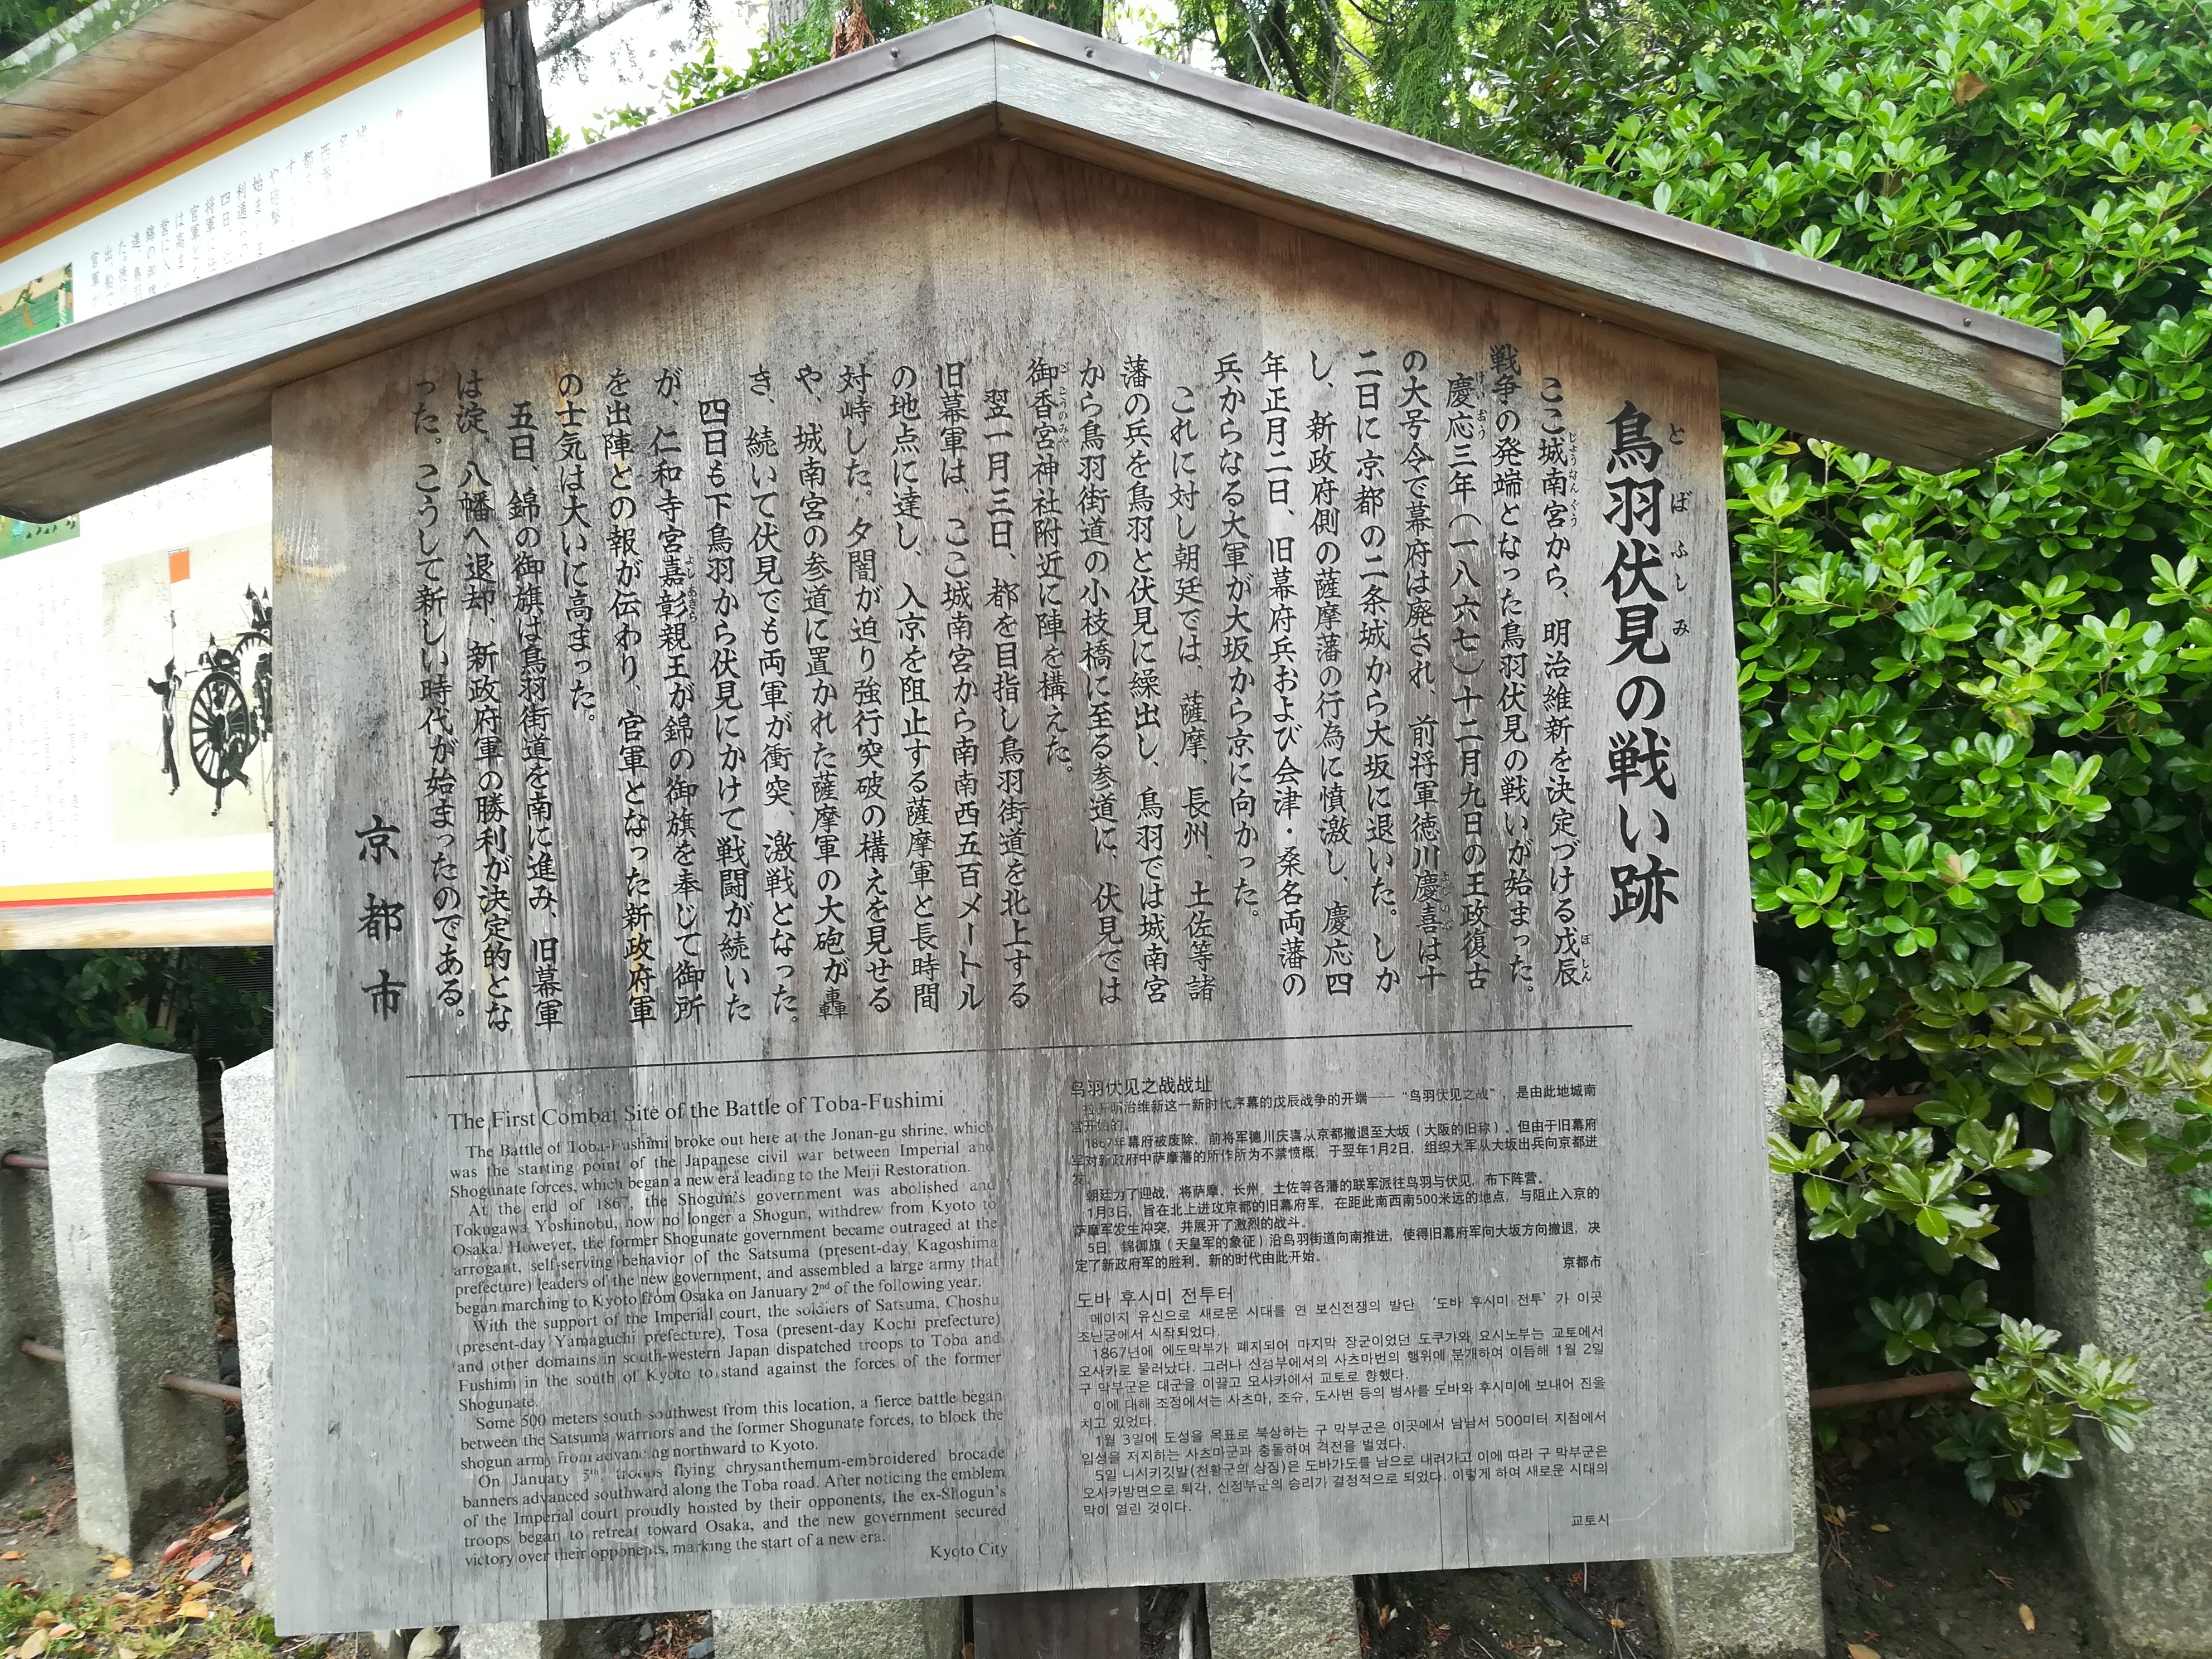 鳥羽伏見の戦い跡
ここ城南宮から、明治維新を決定づける戊辰
戦争の発端となった鳥羽伏見の戦いが始まった。
慶応三年(一八六七)十二月九日の王政復古
の大号令で幕府は廃され、前将軍徳川慶喜は十
二日に京都の二条城から大坂に退いた。しか
し、新政府側の薩摩藩の行為に憤激し、慶応四
年正月二日、旧幕府兵および会津・桑名両藩の
兵からなる大軍が大坂から京に向かった。
これに対し朝廷では、薩摩、長州、土佐等諸
藩の兵を鳥羽と伏見に繰出し、鳥羽では城南宮
から鳥羽街道の小枝橋に至る参道に、伏見では
御香宮神社附近に陣を構えた。
翌一月三日、都を目指し鳥羽街道を北上する
旧幕軍は、ここ城南宮から南南西五百メートル
の地点に達し、入京を阻止する薩摩軍と長時間
対峙した。夕闇が迫り強行突破の構えを見せる
や、城南宮の参道に置かれた薩摩軍の大砲が轟
き、続いて伏見でも両軍が衝突、激戦となった。
四日も下鳥羽から伏見にかけて戦闘が続いた
が、仁和寺宮嘉彰親王が錦の御旗を奉じて御所
を出陣との報が伝わり、官軍となった新政府軍
の士気は大いに高まった。
五日、錦の御旗は鳥羽街道を南に進み、旧幕軍
は淀、八幡へ退却、新政府軍の勝利が決定的とな
った。こうして新しい時代が始まったのである。
京都市
The First Combat Site of the Battle of Toba-Fushimi
The Battle of Toba-Fushimi broke out here at the Jonan-gu shrine, which
was the starting point of the Japanese civil war between Imperial and
Shogunate forces, which began a new era leading to the Meiji Restoration.
At the end of 1867, the Shogun's government was abolished and
Tokugawa Yoshinobu, now no longer a Shogun, withdrew from Kyoto to
Osaka. However, the former Shogunate government became outraged at the
arrogant, self-serving behavior of the Satsuma (present-day Kagoshima
prefecture) leaders of the new government, and assembled a large army that
began marching to Kyoto from Osaka on January 2nd of the following year.
With the support of the Imperial court, the soldiers of Satsuma, Choshu
(present-day Yamaguchi prefecture), Tosa (present-day Kochi prefecture)
and other domains in south-western Japan dispatched troops to Toba and
Fushimi in the south of Kyoto to stand against the forces of the former
Shogunate.
Some 500 meters south-southwest from this location, a fierce battle began
between the Satsuma warriors and the former Shogunate forces, to block the
shogun army from advancing northward to Kyoto.
On January 5th, troops flying chrysanthemum-embroidered brocade
banners advanced southward along the Toba road. After noticing the emblem
of the Imperial court proudly hoisted by their opponents, the ex-Shogun's
troops began to retreat toward Osaka, and the new government secured
victory over their opponents, marking the start of a new era.
Kyoto City
鸟羽伏见之战战址
拉开明治维新这一新时代序幕的戊辰战争的开端——“鸟羽伏见之战”，是由此地城南
宫开始的。
1867年幕府被废除，前将军德川庆喜从京都撤退至大坂（大阪的旧称）。但由于旧幕府
军对新政府中萨摩藩的所作所为不禁愤概，于翌年1月2日，组织大军从大坂出兵向京都进
发。
朝廷为了迎战，将萨摩、长州、土佐等各藩的联军派往鸟羽与伏见，布下阵营。
1月3日，旨在北上进攻京都的旧幕府军，在距此南西南500米远的地点，与阻止入京的
萨摩军发生冲突，并展开了激烈的战斗。
5日，锦御旗（天皇军的象征）沿鸟羽街道向南推进，使得旧幕府军向大坂方向撤退，决
定了新政府军的胜利。新的时代由此开始。
京都市
도바 후시미 전투터
메이지 유신으로 새로운 시대를 연 보신전쟁의 발단 ‘도바 후시미 전투’가 이곳
조난궁에서 시작되었다.
1867년에 에도막부가 폐지되어 마지막 장군이었던 도쿠가와 요시노부는 교토에서
오사카로 물러났다. 그러나 신정부에서의 사츠마번의 행위에 분개하여 이듬해 1월 2일
구 막부군은 대군을 이끌고 오사카에서 교토로 향했다.
이에 대해 조정에서는 사츠마, 조슈, 도사번 등의 병사를 도바와 후시미에 보내어 진을
치고 있었다.
1월 3일에 도성을 목표로 북상하는 구 막부군은 이곳에서 남남서 500미터 지점에서
입성을 저지하는 사츠마군과 충돌하여 격전을 벌였다.
5일 니시키깃발(천황군의 상징)은 도바가도를 남으로 내려가고 이에 따라 구 막부군은
오사카방면으로 퇴각, 신정부군의 승리가 결정적으로 되었다. 이렇게 하여 새로운 시대의
막이 열린 것이다.
교토시